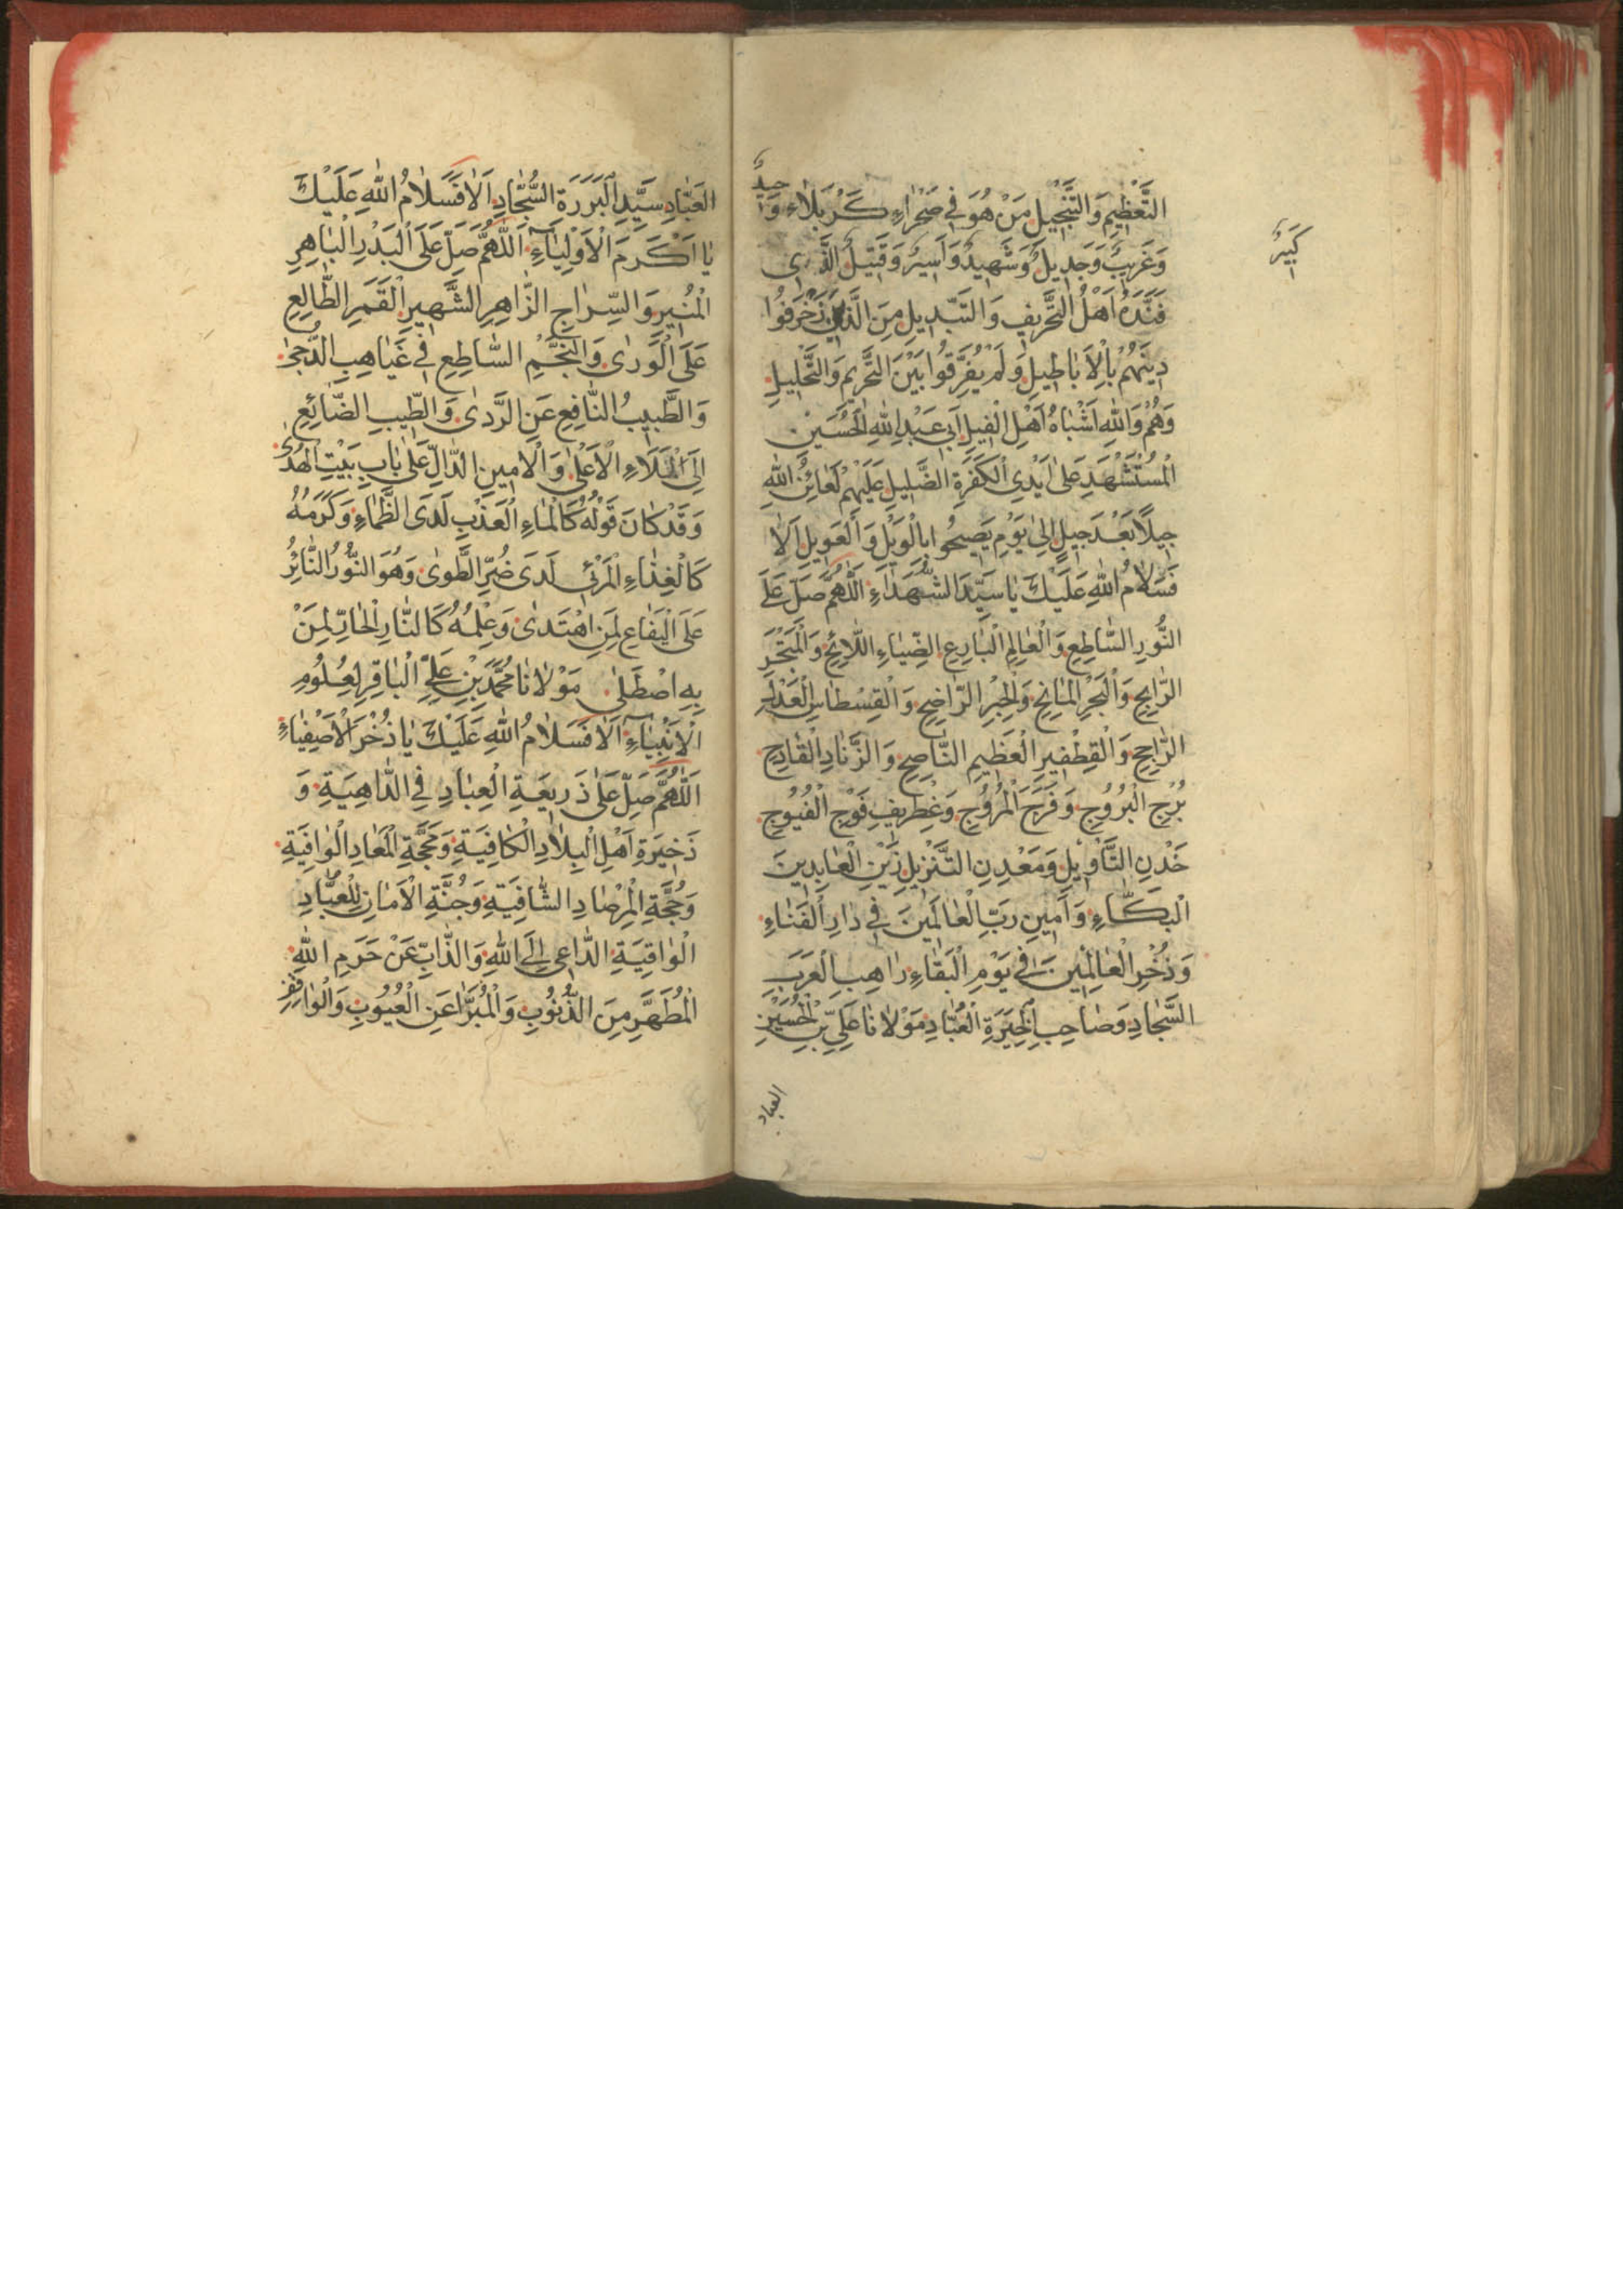 التَّعْظِيمِ وَالتَّبْجِيلِ مَنْ هُوَ فِي صَحْرَاءِ كَرْبَلَاءَ وَحِيدٌ
وَغَرِيبٌ وَجَدِيلٌ وَشَهِيدٌ وَاَسِيرٌ وَقَتِيلٌ الَّذِى
كَبِيرٌ
اَهْلُ التَّحْرِيفِ وَالتَّبْدِيلِ مِنَ الَّذِينَ زَخْرَفُوا
دِينَهُمْ بِالْاَبَاطِيلِ وَلَمْ يُفَرِّقُوا بَيْنَ التَّحْرِيمِ وَالتَّحْلِيلِ
وَهُمْ وَاللهِ اَشْبَاهُ اَهْلِ الْفِيلِ اَبِي عَبْدِ اللهِ الْحُسَيْنِ
الْمُسْتَشْهَدِ عَلٰى اَيْدِى الْكَفَرَةِ الضِّلِيلِ عَلَيْهِمْ لَعَائِنُ اللهِ
جِيلًا بَعْدَ جِيلٍ اِلٰى يَوْمِ يَصِيحُوا بِالْوَيْلِ وَالْعَوِيلِ اَلَا
فَسَلَامُ اللهِ عَلَيْكَ يَا سَيِّدَ الشُّهَدَاءِ اَللّٰهُمَّ صَلِّ عَلَى
النُّورِ السَّاطِعِ وَالْعَالِمِ الْبَارِعِ الضِّيَاءِ اللَّائِحِ وَالْمَتْجَرِ
الرَّابِحِ وَالْبَحْرِ الْمَانِحِ وَالْحِبْرِ الرَّاضِحِ وَالْقِسْطَاسِ الْعَدْلِ
الرَّاجِحِ وَالْقِطْفِيرِ الْعَظِيمِ النَّاصِحِ وَالزَّنَادِ الْقَادِحِ
بُرْجِ الْبُرُوجِ وَفَرَجِ الْمُرُوجِ وَغِطْرِيفِ فَوْجِ الْفُيُوجِ
خَدْنِ التَّأْوِيلِ وَمَعْدِنِ التَّنْزِيلِ زَيْنِ الْعَابِدِينَ
الْبَكَّاءِ وَاَمِينِ رَبِّ الْعَالَمِينَ فِي دَارِ الْفَنَاءِ
وَذُخْرِ الْعَالِمِينَ فِي يَوْمِ الْبَقَاءِ رَاهِبِ الْعَرَبِ
السَّجَّادِ وَصَاحِبِ الْخِيَرَةِ الْعُبَّادِ مَوْلَانَا عَلِيِّ بْنِ الْحُسَيْنِ
العباد
الْعُبَّادِ سَيِّدِ الْبَرَرَةِ السُّجَّادِ اَلَا فَسَلَامُ اللهِ عَلَيْكَ
يَا اَكْرَمَ الْاَوْلِيَاءِ اَللّٰهُمَّ صَلِّ عَلَى الْبَدْرِ الْبَاهِرِ
الْمُنِيرِ وَالسِّرَاجِ الزَّاهِرِ الشَّهِيرِ الْقَمَرِ الطَّالِعِ
عَلَى الْوَرٰى وَالنَّجْمِ السَّاطِعِ فِي غَيَاهِبِ الدُّجٰى
وَالطَّبِيبُ النَّافِعِ عَنِ الرَّدٰى وَالطِّيبِ الضَّائِعِ
اِلَى الْمَلَاءِ الْاَعْلٰى وَالْاَمِينِ الدَّالِّ عَلٰى بَابِ بَيْتِ الْهُدٰى
وَقَدْ كَانَ قَوْلُهُ كَالْمَاءِ الْعَذْبِ لَدَى الظَّمَاءِ وَكَرَمُهُ
كَالْغِذَاءِ الْمَرِئِ لَدَى ضُرِّ الطَّوٰى وَهُوَ النُّورُ النَّائِرُ
عَلَى الْيَفَاعِ لِمَنِ اهْتَدٰى وَعِلْمُهُ كَالنَّارِ الْحَارِّ لِمَنْ
بِهِ اصْطَلٰى مَوْلَانَا مُحَمَّدِ بْنِ عَلِيٍّ الْبَاقِرِ لِعُلُومِ
الْاَنْبِيَاءِ اَلَا فَسَلَامُ اللهِ عَلَيْكَ يَا ذُخْرَ الْاَصْفِيَاءِ
اَللّٰهُمَّ صَلِّ عَلٰى ذَرِيعَةِ الْعِبَادِ فِي الدَّاهِيَةِ وَ
ذَخِيرَةِ اَهْلِ الْبِلَادِ الْكَافِيَةِ وَمَحَجَّةِ الْمَعَادِ الْوَافِيَةِ
وَحُجَّةِ الْمِرْصَادِ الشَّافِيَةِ وَجُنَّةِ الْاَمَانِ لِلْعُبَّادِ
الْوَاقِيَةِ الدَّاعِى اِلَى اللهِ وَالذَّابِّ عَنْ حَرَمِ اللهِ
الْمُطَهَّرِ مِنَ الذُّنُوبِ وَالْمُبَرَّا عَنِ الْعُيُوبِ وَالْوَاقِفِ